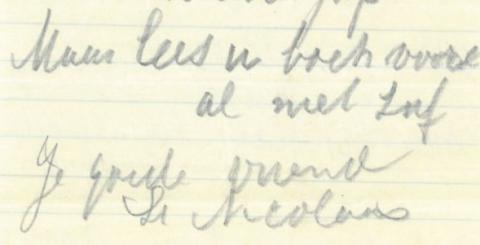 Maar lees u boek voor
al met
Je goede vriend
St Nicolaas